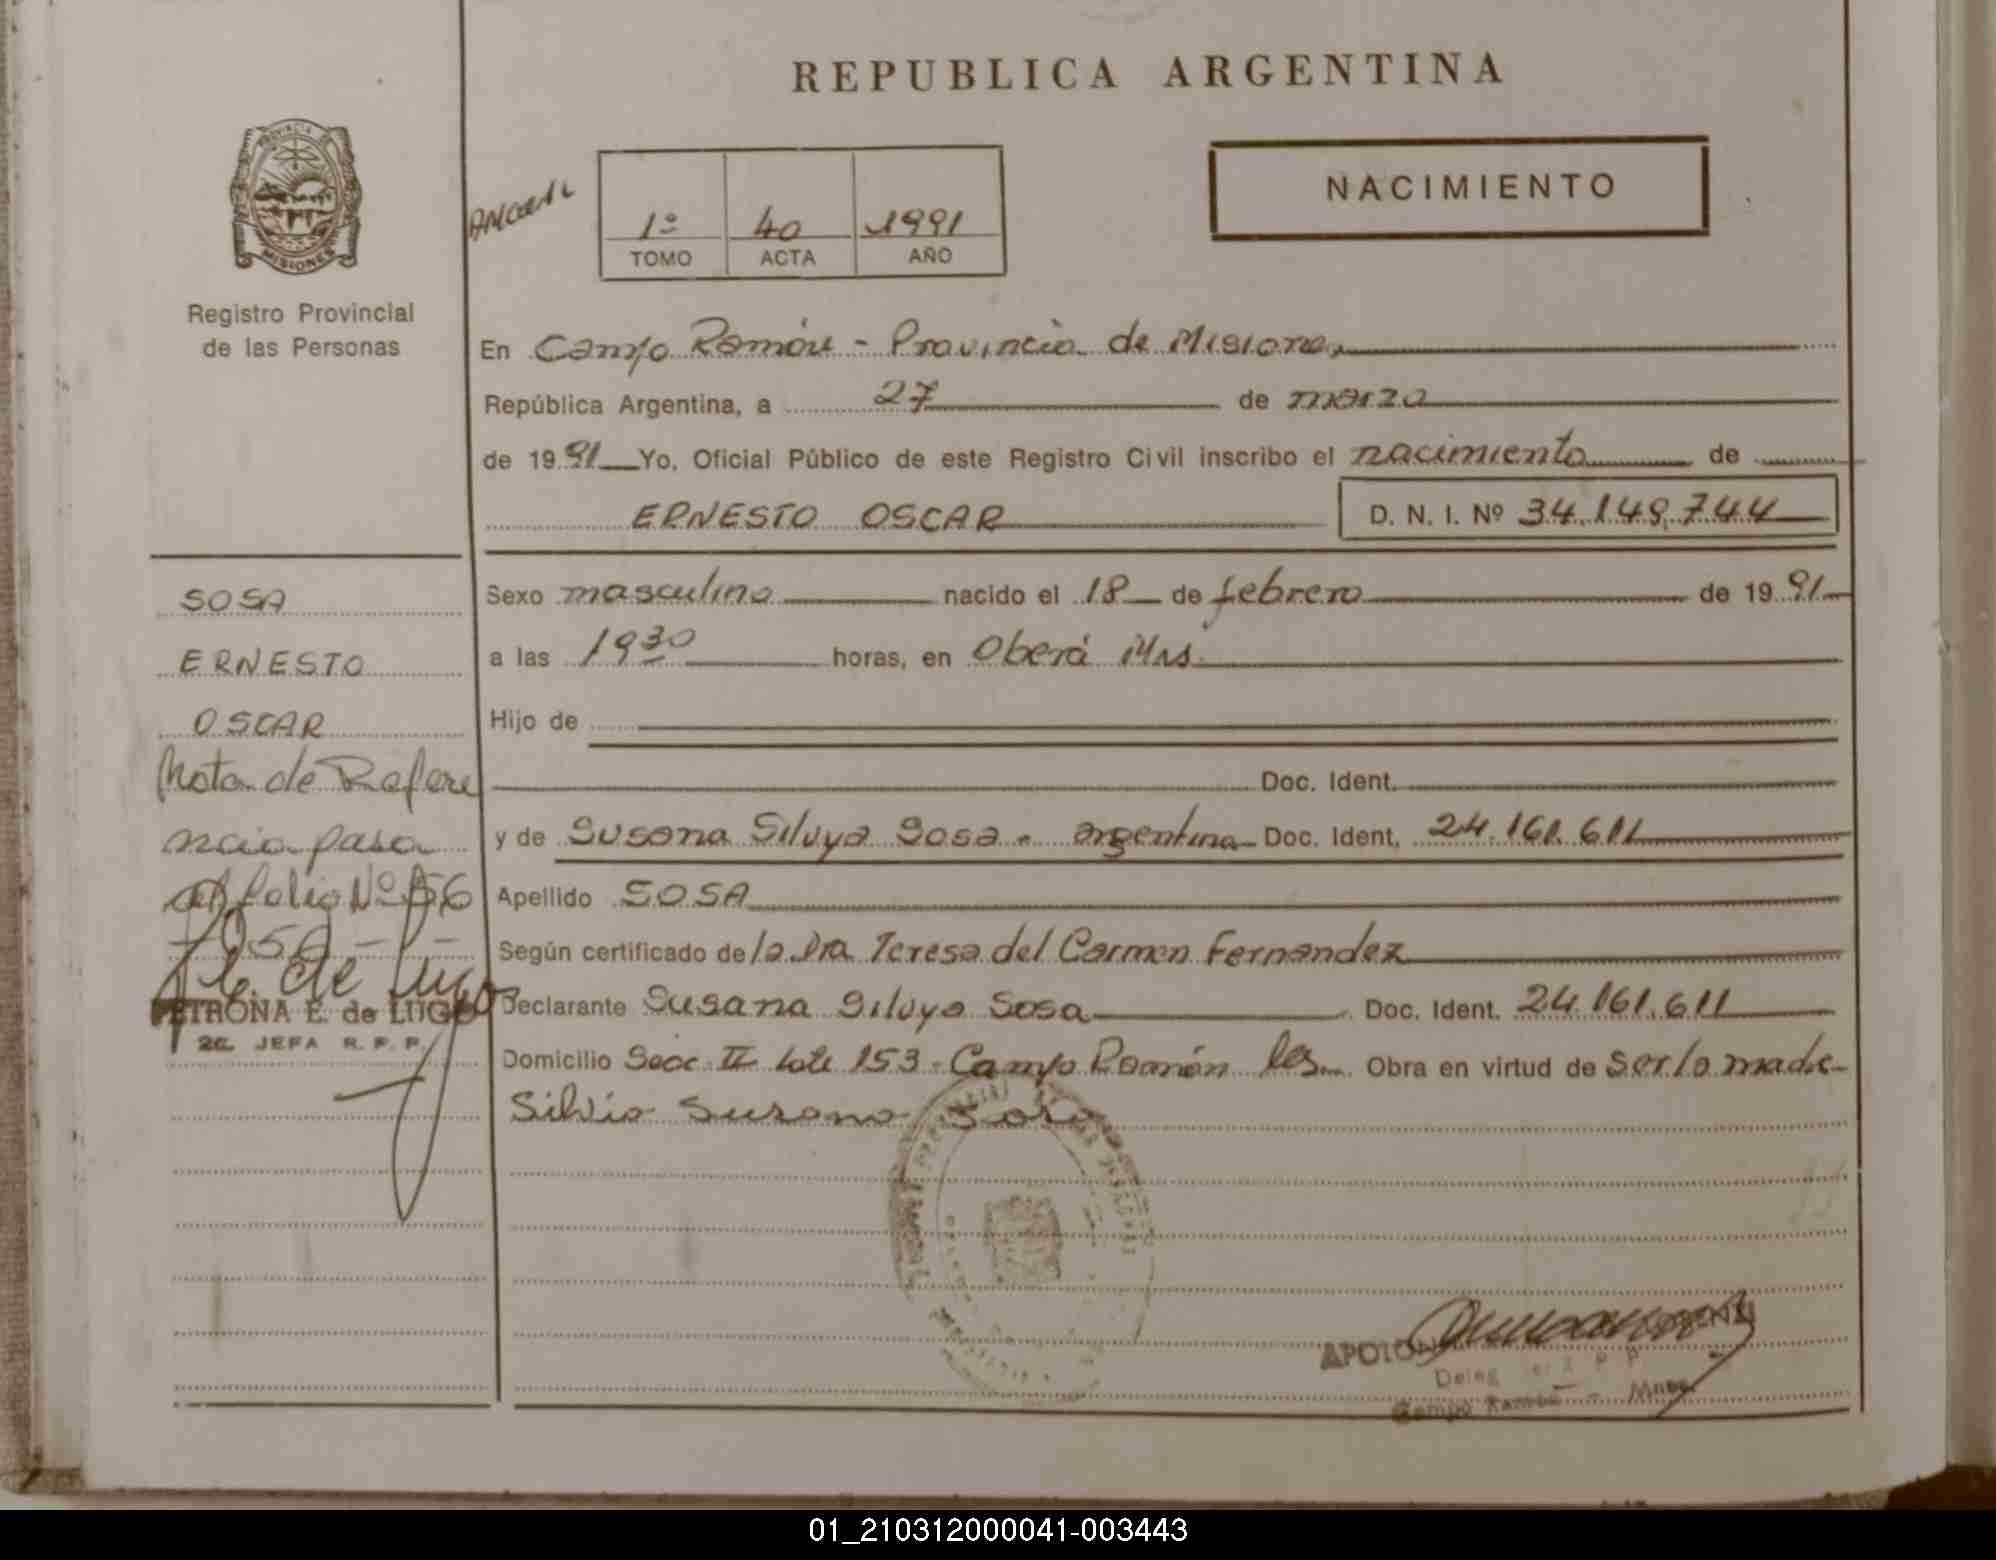 REPUBLICA ARGENTINA
PROVINCIA DE
MISIONES
Registro Provincial
de las Personas
1º 40 1991
TOMO ACTA AÑO
NACIMIENTO
En Campo Ramón - Provincia de Misiones
República Argentina, a 27 de marzo
de 1991 Yo, Oficial Público de este Registro Civil inscribo el nacimiento de
ERNESTO OSCAR D. N. I. Nº 34.149.744
SOSA
ERNESTO
OSCAR
Nota de Refere
ncia pasa
al folio Nº 56
PETRONA E. de LUGO
2c. JEFA R. P. P.
Sexo masculino nacido el 18 de febrero de 1991
a las 19 30 horas, en Oberá Mns.
Hijo de
Doc. Ident.
y de Susana Silvya Sosa - argentina Doc. Ident. 24.161.611
Apellido SOSA
Según certificado de la Dra Teresa del Carmen Fernandez
Declarante Susana Silvya Sosa Doc. Ident. 24.161.611
Domicilio Secc II Lote 153 - Campo Ramón Obra en virtud de ser la madre
Silvia Susana Sosa
Deleg R P P
Campo Ramón - Mnes.
01_210312000041-003443